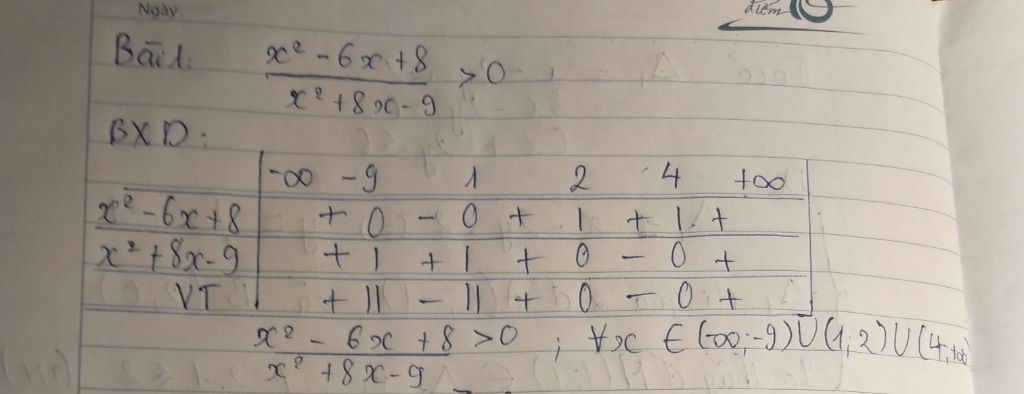 Ngày
điểm
Bài 1: (x² - 6x + 8)/(x² + 8x - 9) > 0
BXD:
-∞ -9 1 2 4 +∞
x² - 6x + 8 + 0 - 0 + | + | +
x² + 8x - 9 + | + | + 0 - 0 +
VT + || - || + 0 - 0 +
(x² - 6x + 8)/(x² + 8x - 9) > 0 ; ∀x ∈ (-∞;-9) ∪ (1;2) ∪ (4;+∞)